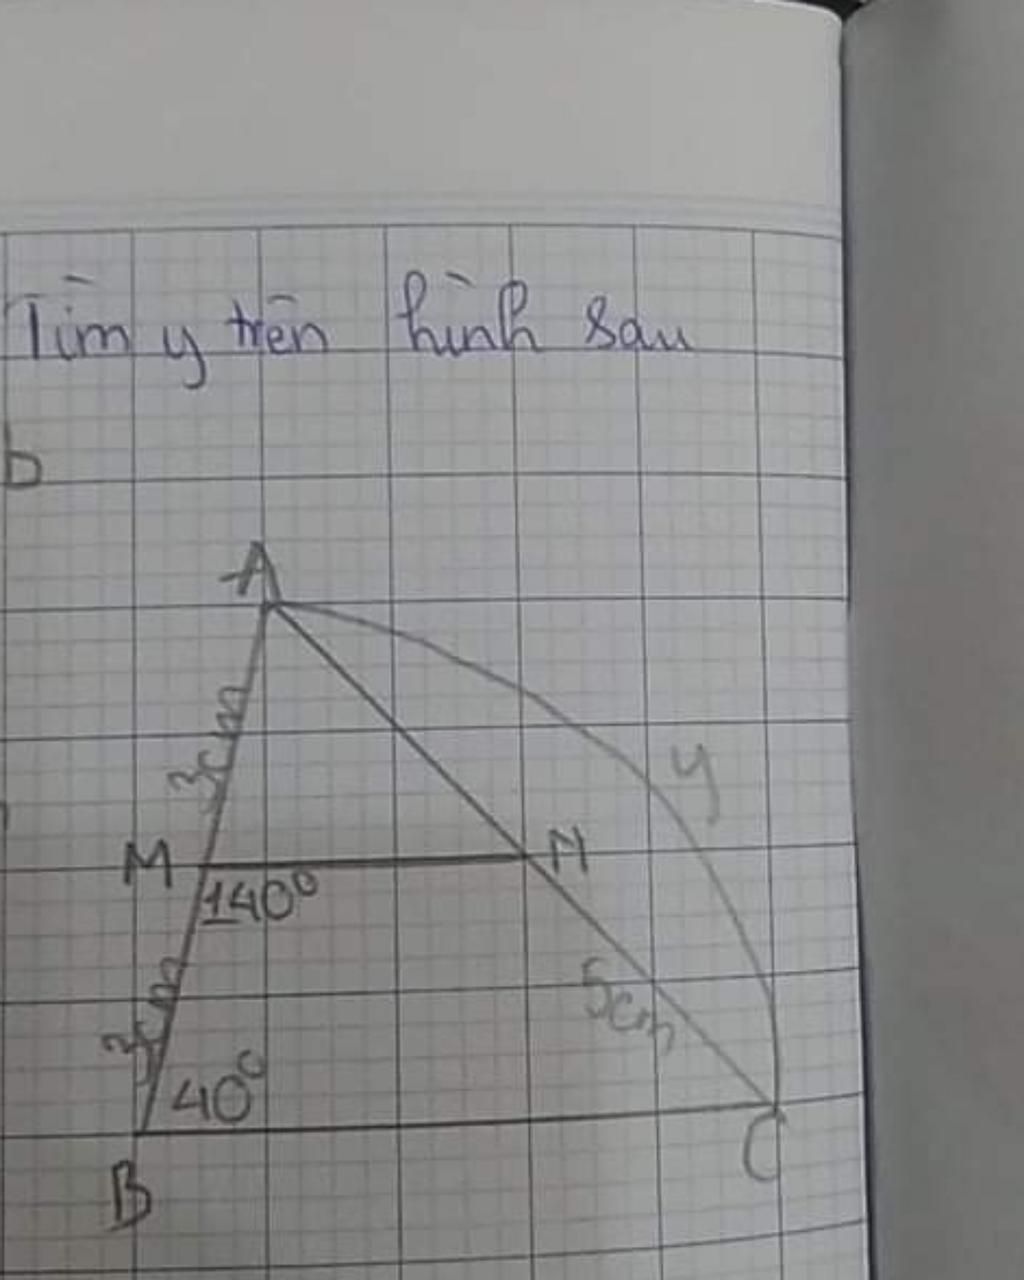 Tìm y trên hình sau
b
A
3cm
y
M
N
140°
5cm
3cm
40°
C
B